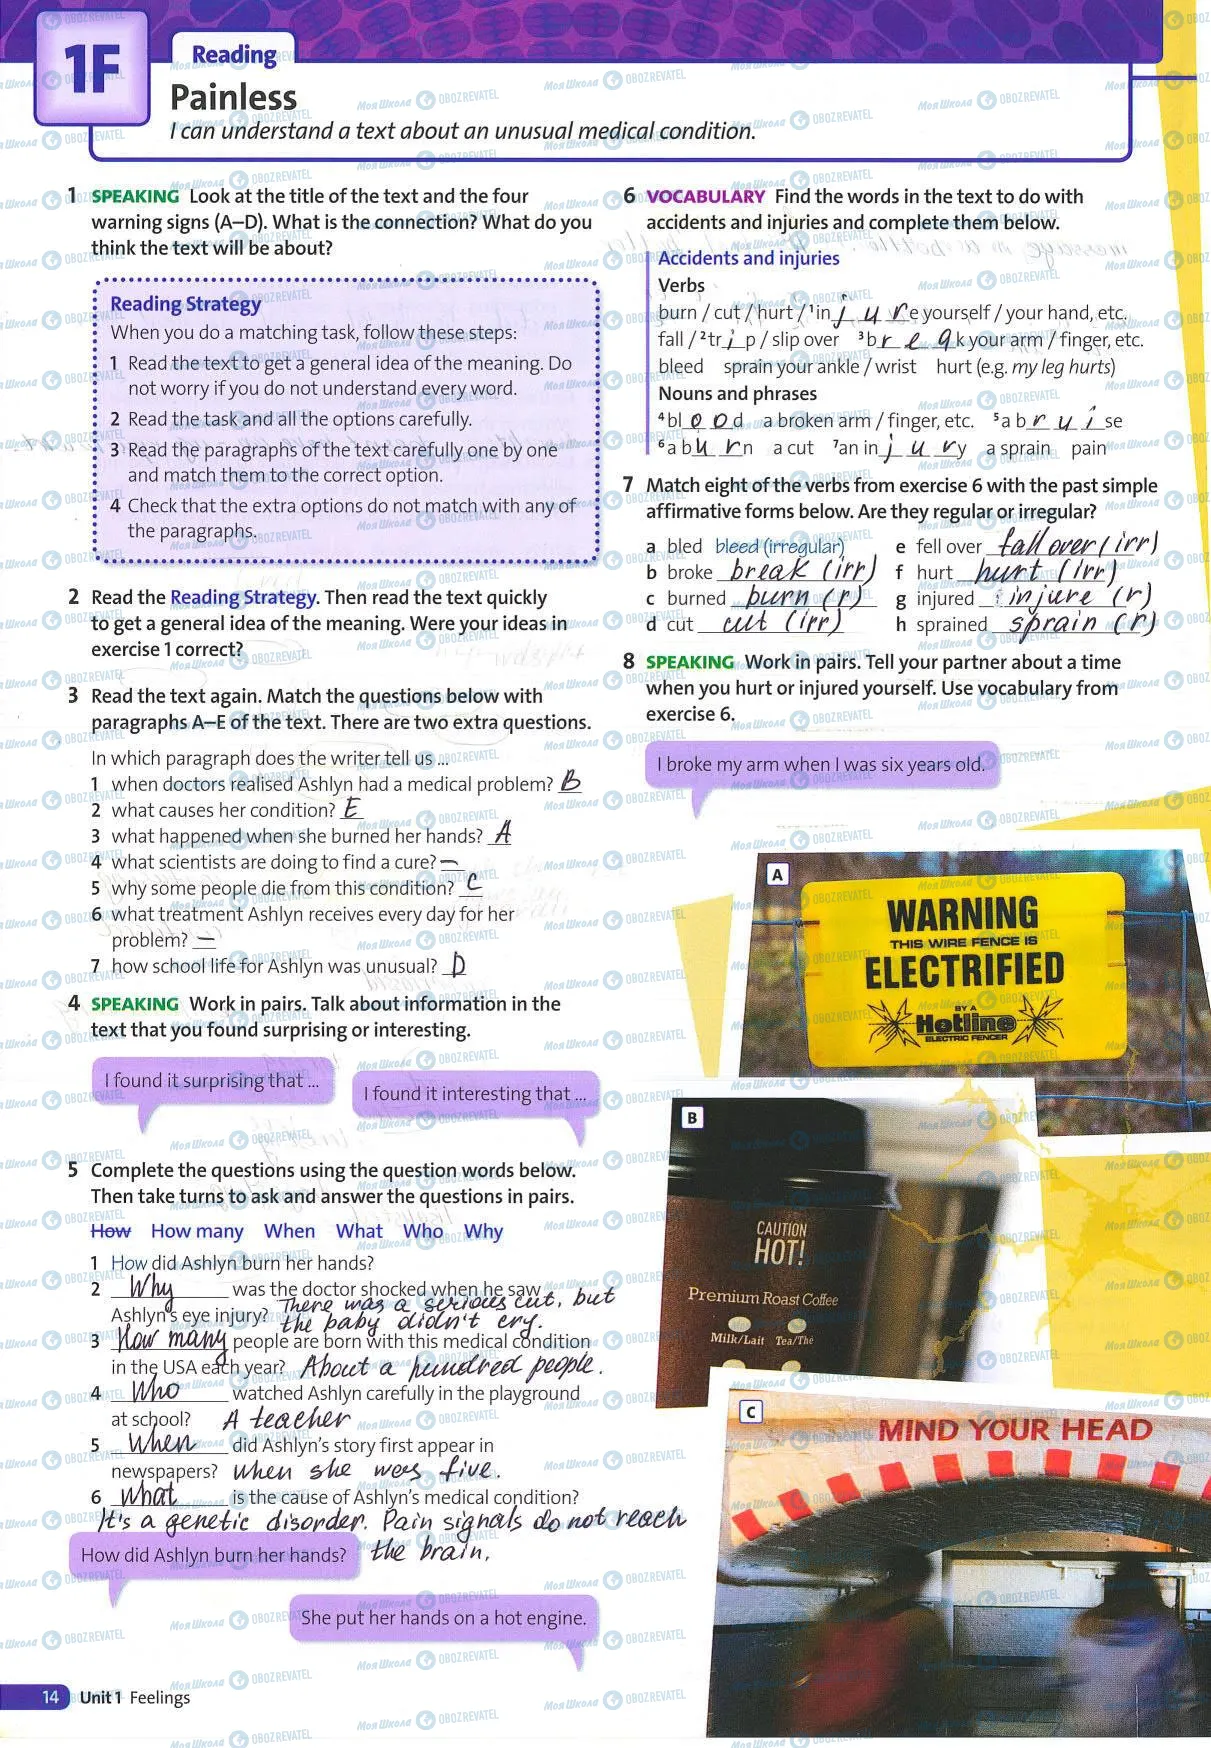 1F
Reading
Painless
I can understand a text about an unusual medical condition.
1 SPEAKING Look at the title of the text and the four
warning signs (A–D). What is the connection? What do you
think the text will be about?
Reading Strategy
When you do a matching task, follow these steps:
1 Read the text to get a general idea of the meaning. Do
not worry if you do not understand every word.
2 Read the task and all the options carefully.
3 Read the paragraphs of the text carefully one by one
and match them to the correct option.
4 Check that the extra options do not match with any of
the paragraphs.
2 Read the Reading Strategy. Then read the text quickly
to get a general idea of the meaning. Were your ideas in
exercise 1 correct?
3 Read the text again. Match the questions below with
paragraphs A–E of the text. There are two extra questions.
In which paragraph does the writer tell us ...
1 when doctors realised Ashlyn had a medical problem? B
2 what causes her condition? E
3 what happened when she burned her hands? A
4 what scientists are doing to find a cure? –
5 why some people die from this condition? C
6 what treatment Ashlyn receives every day for her
problem? –
7 how school life for Ashlyn was unusual? D
4 SPEAKING Work in pairs. Talk about information in the
text that you found surprising or interesting.
I found it surprising that ...
I found it interesting that ...
5 Complete the questions using the question words below.
Then take turns to ask and answer the questions in pairs.
How How many When What Who Why
1 How did Ashlyn burn her hands?
2 Why was the doctor shocked when he saw
Ashlyn's eye injury? There was a serious cut, but
the baby didn't cry.
3 How many people are born with this medical condition
in the USA each year? About a hundred people.
4 Who watched Ashlyn carefully in the playground
at school? A teacher
5 When did Ashlyn's story first appear in
newspapers? when she was five.
6 What is the cause of Ashlyn's medical condition?
It's a genetic disorder. Pain signals do not reach
the brain.
How did Ashlyn burn her hands?
She put her hands on a hot engine.
14 Unit 1 Feelings
6 VOCABULARY Find the words in the text to do with
accidents and injuries and complete them below.
Accidents and injuries
Verbs
burn / cut / hurt / ¹injure yourself / your hand, etc.
fall / ²trip / slip over ³break your arm / finger, etc.
bleed sprain your ankle / wrist hurt (e.g. my leg hurts)
Nouns and phrases
⁴blood a broken arm / finger, etc. ⁵a bruise
⁶a burn a cut ⁷an injury a sprain pain
7 Match eight of the verbs from exercise 6 with the past simple
affirmative forms below. Are they regular or irregular?
a bled bleed (irregular) e fell over fall over (irr)
b broke break (irr) f hurt hurt (irr)
c burned burn (r) g injured injure (r)
d cut cut (irr) h sprained sprain (r)
8 SPEAKING Work in pairs. Tell your partner about a time
when you hurt or injured yourself. Use vocabulary from
exercise 6.
I broke my arm when I was six years old.
A
WARNING
THIS WIRE FENCE IS
ELECTRIFIED
BY A
Hotline
ELECTRIC FENCER
B
CAUTION
HOT!
Premium Roast Coffee
Milk/Lait Tea/Thé
C
MIND YOUR HEAD
Моя Школа OBOZREVATEL